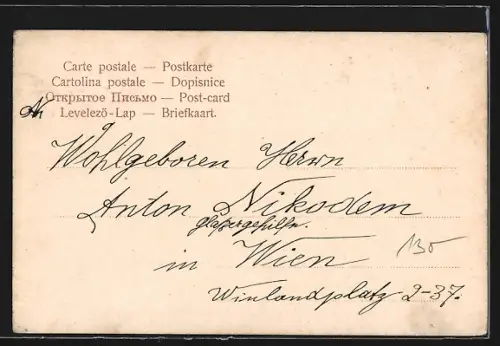 Carte postale — Postkarte
Cartolina postale — Dopisnice
Открытое Письмо — Post-card
Levelező-Lap — Briefkaart.
An
Wohlgeboren Herrn
Anton Nikodem
Glasergehilfe.
in Wien
Winlandplatz 2-37.
130